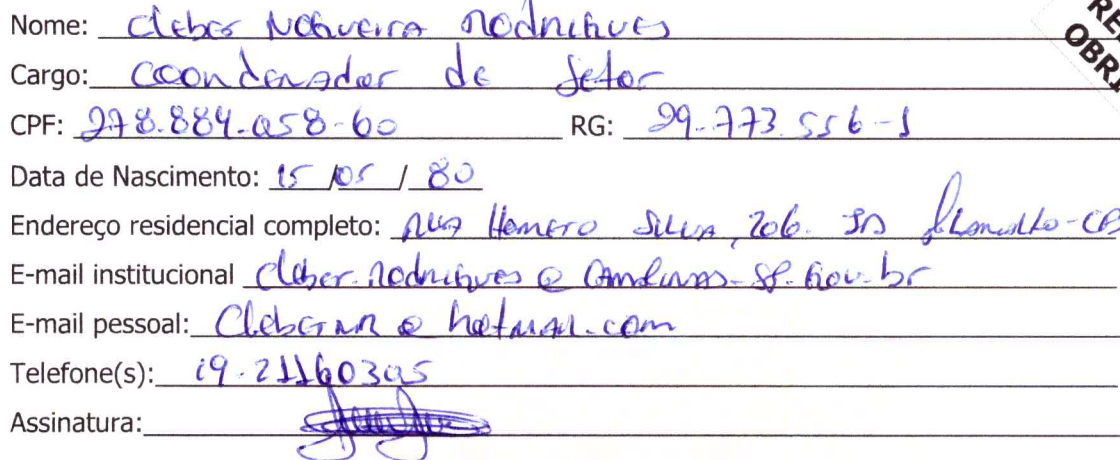 Nome: Cleber Nogueira Rodrigues
Cargo: Coordenador de Setor
CPF: 278.884.058-60 RG: 29.773.556-1
Data de Nascimento: 15/05/80
Endereço residencial completo: Rua Homero Silva, 206. JD
E-mail institucional Cleber.Rodrigues@Campinas.SP.Gov.br
E-mail pessoal: ClebernR@hotmail.com
Telefone(s): 19.21160305
Assinatura: